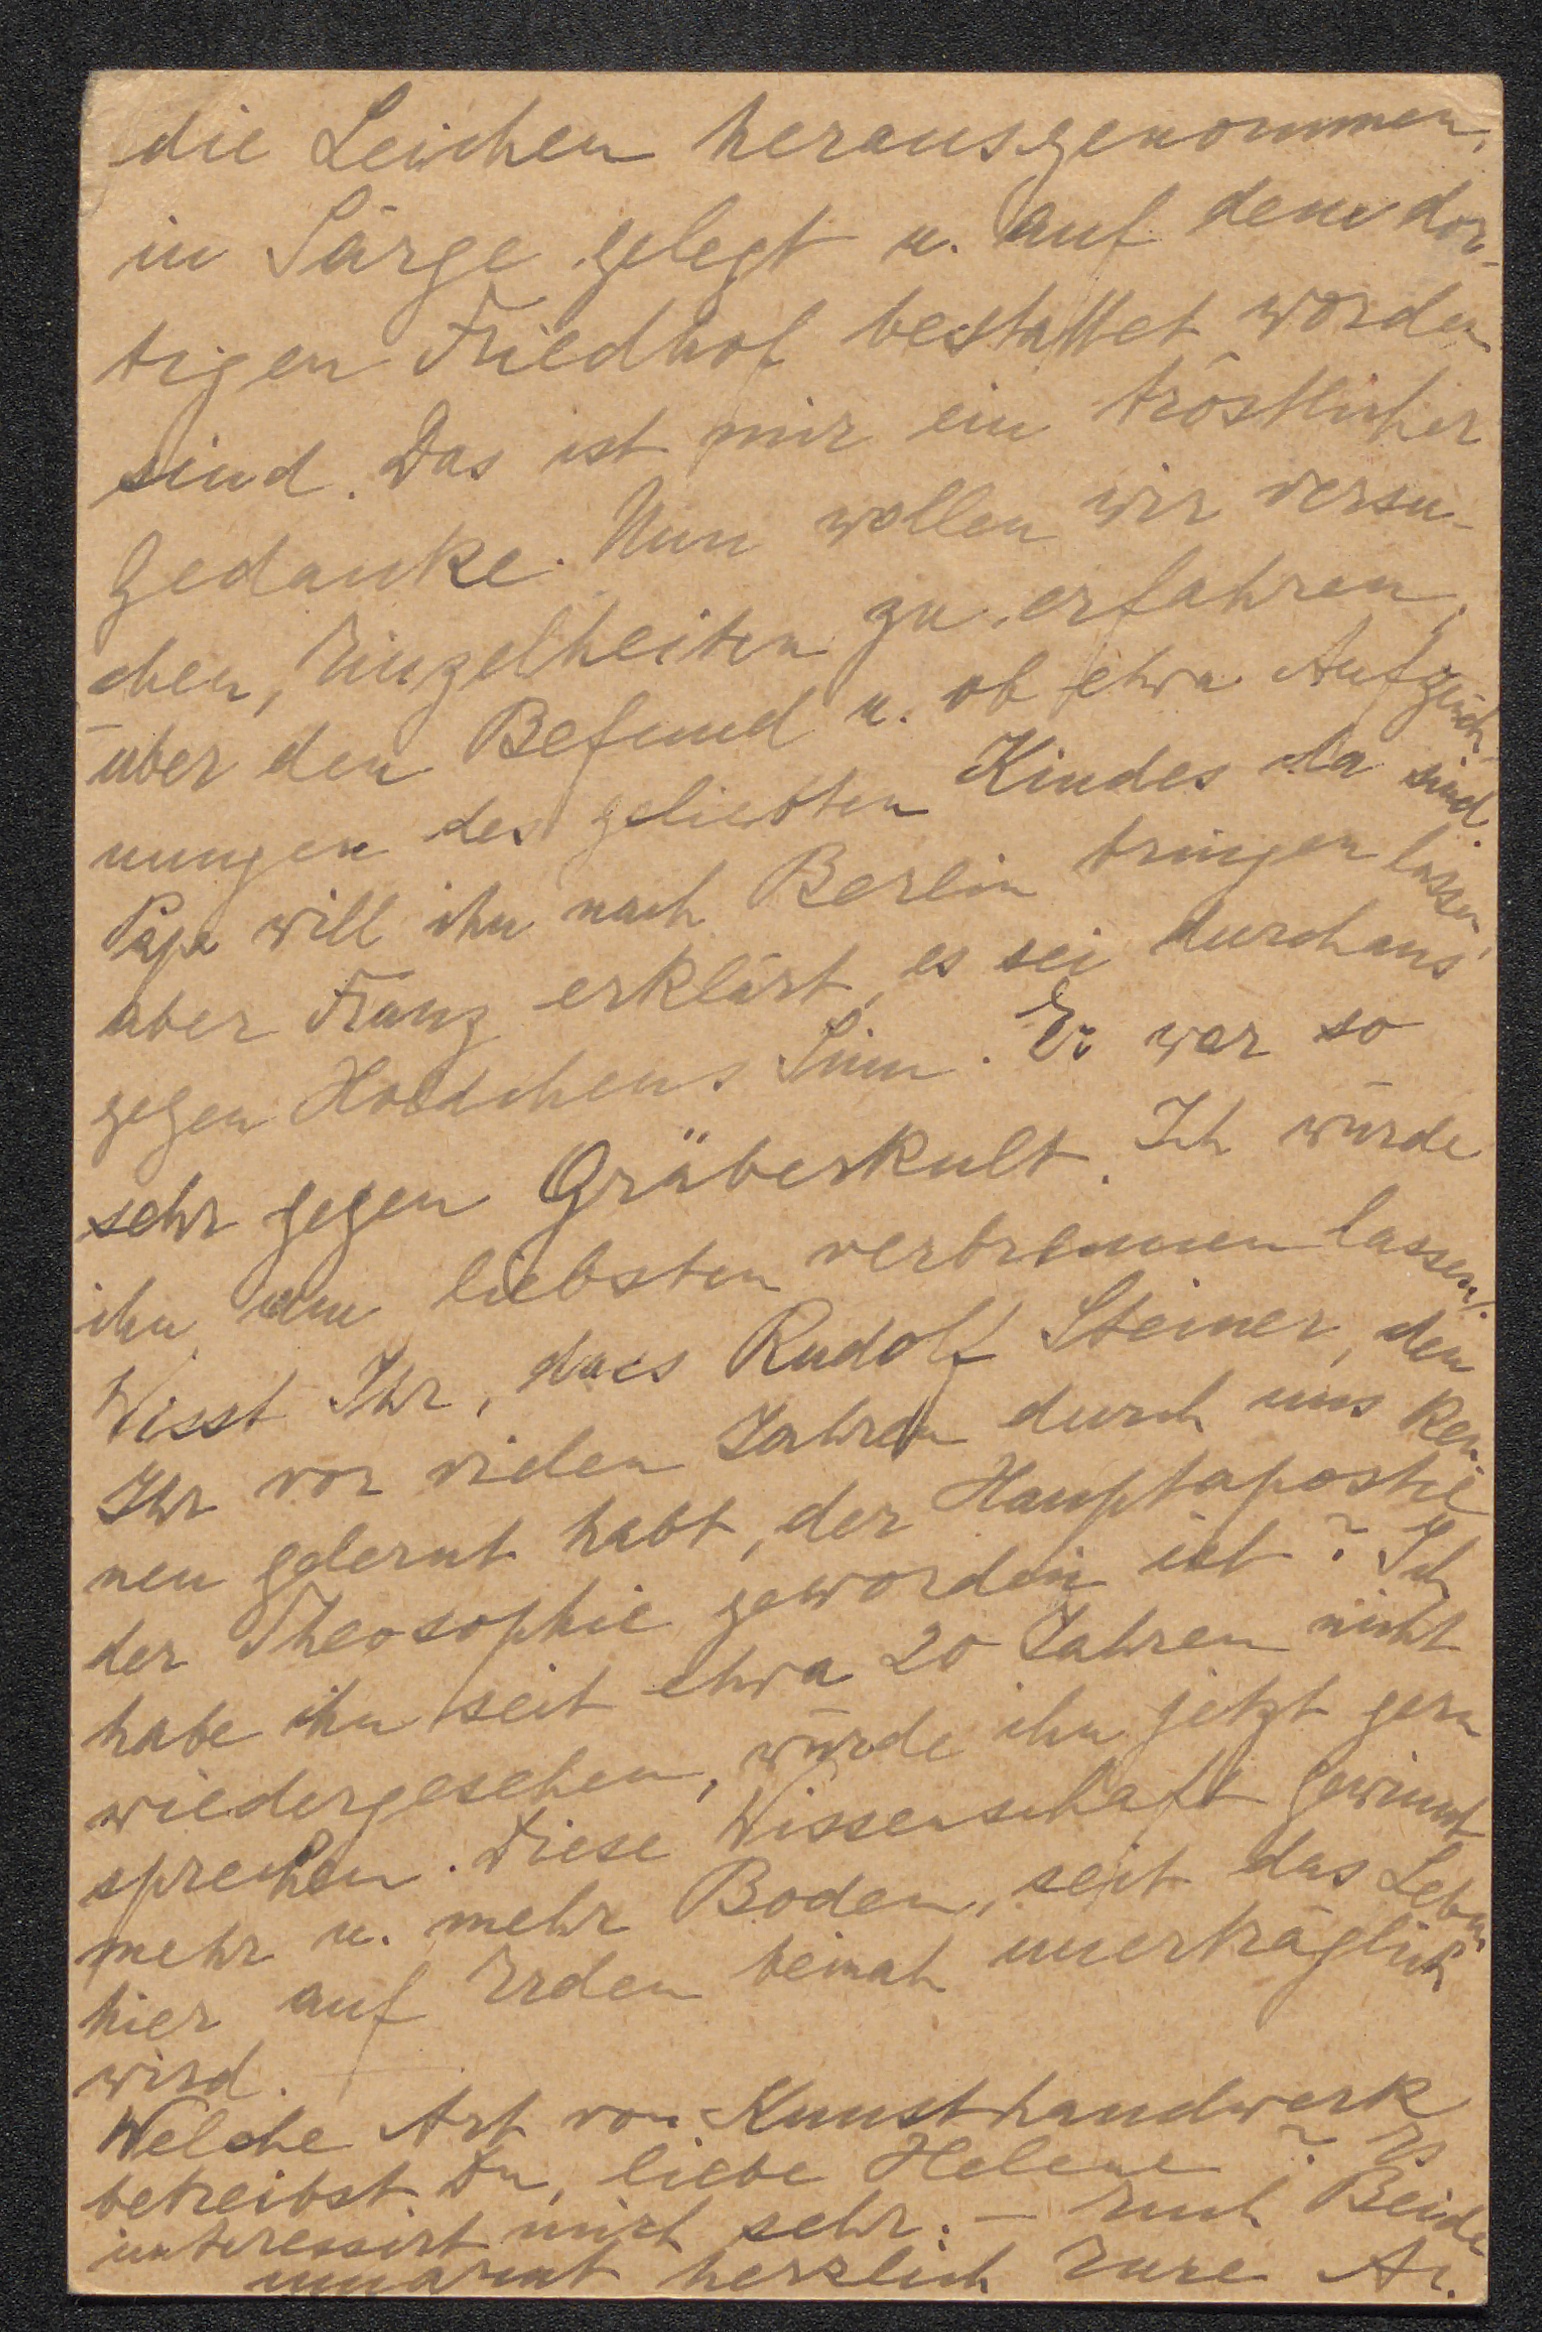 die Leichen herausgenommen,
in Särge gelegt u. auf dem dor-
tigen Friedhof bestattet worden
sind. Das ist mir ein tröstlicher
Gedanke. Nun wollen wir versu-
chen, Einzelheiten zu erfahren,
über den Befund u. ob etwa Aufzeich-
nungen des geliebten Kindes da sind.
Papa will ihn nach Berlin bringen lassen,
aber Franz erklärt, es sei durchaus
gegen Sinn. Er war so
sehr gegen Gräberkult. Ich würde
ihn am liebsten verbrennen lassen!.
Wisst Ihr, dass Rudolf Steiner, den
Ihr vor vielen Jahren durch uns ken-
nen gelernt habt, der Hauptapostel
der Theosophie geworden ist? Ich
habe ihn seit etwa 20 Jahren nicht
wiedergesehen, würde ihn jetzt gern
sprechen. Diese Wissenschaft gewinnt
mehr u. mehr Boden, seit das Leben
hier auf Erden beinah unerträglich
wird. —
Welche Art von Kunsthandwerk
betreibst Du, liebe Helene? Es
interessirt mich sehr. – Euch Beide
umarmt herzlich Eure